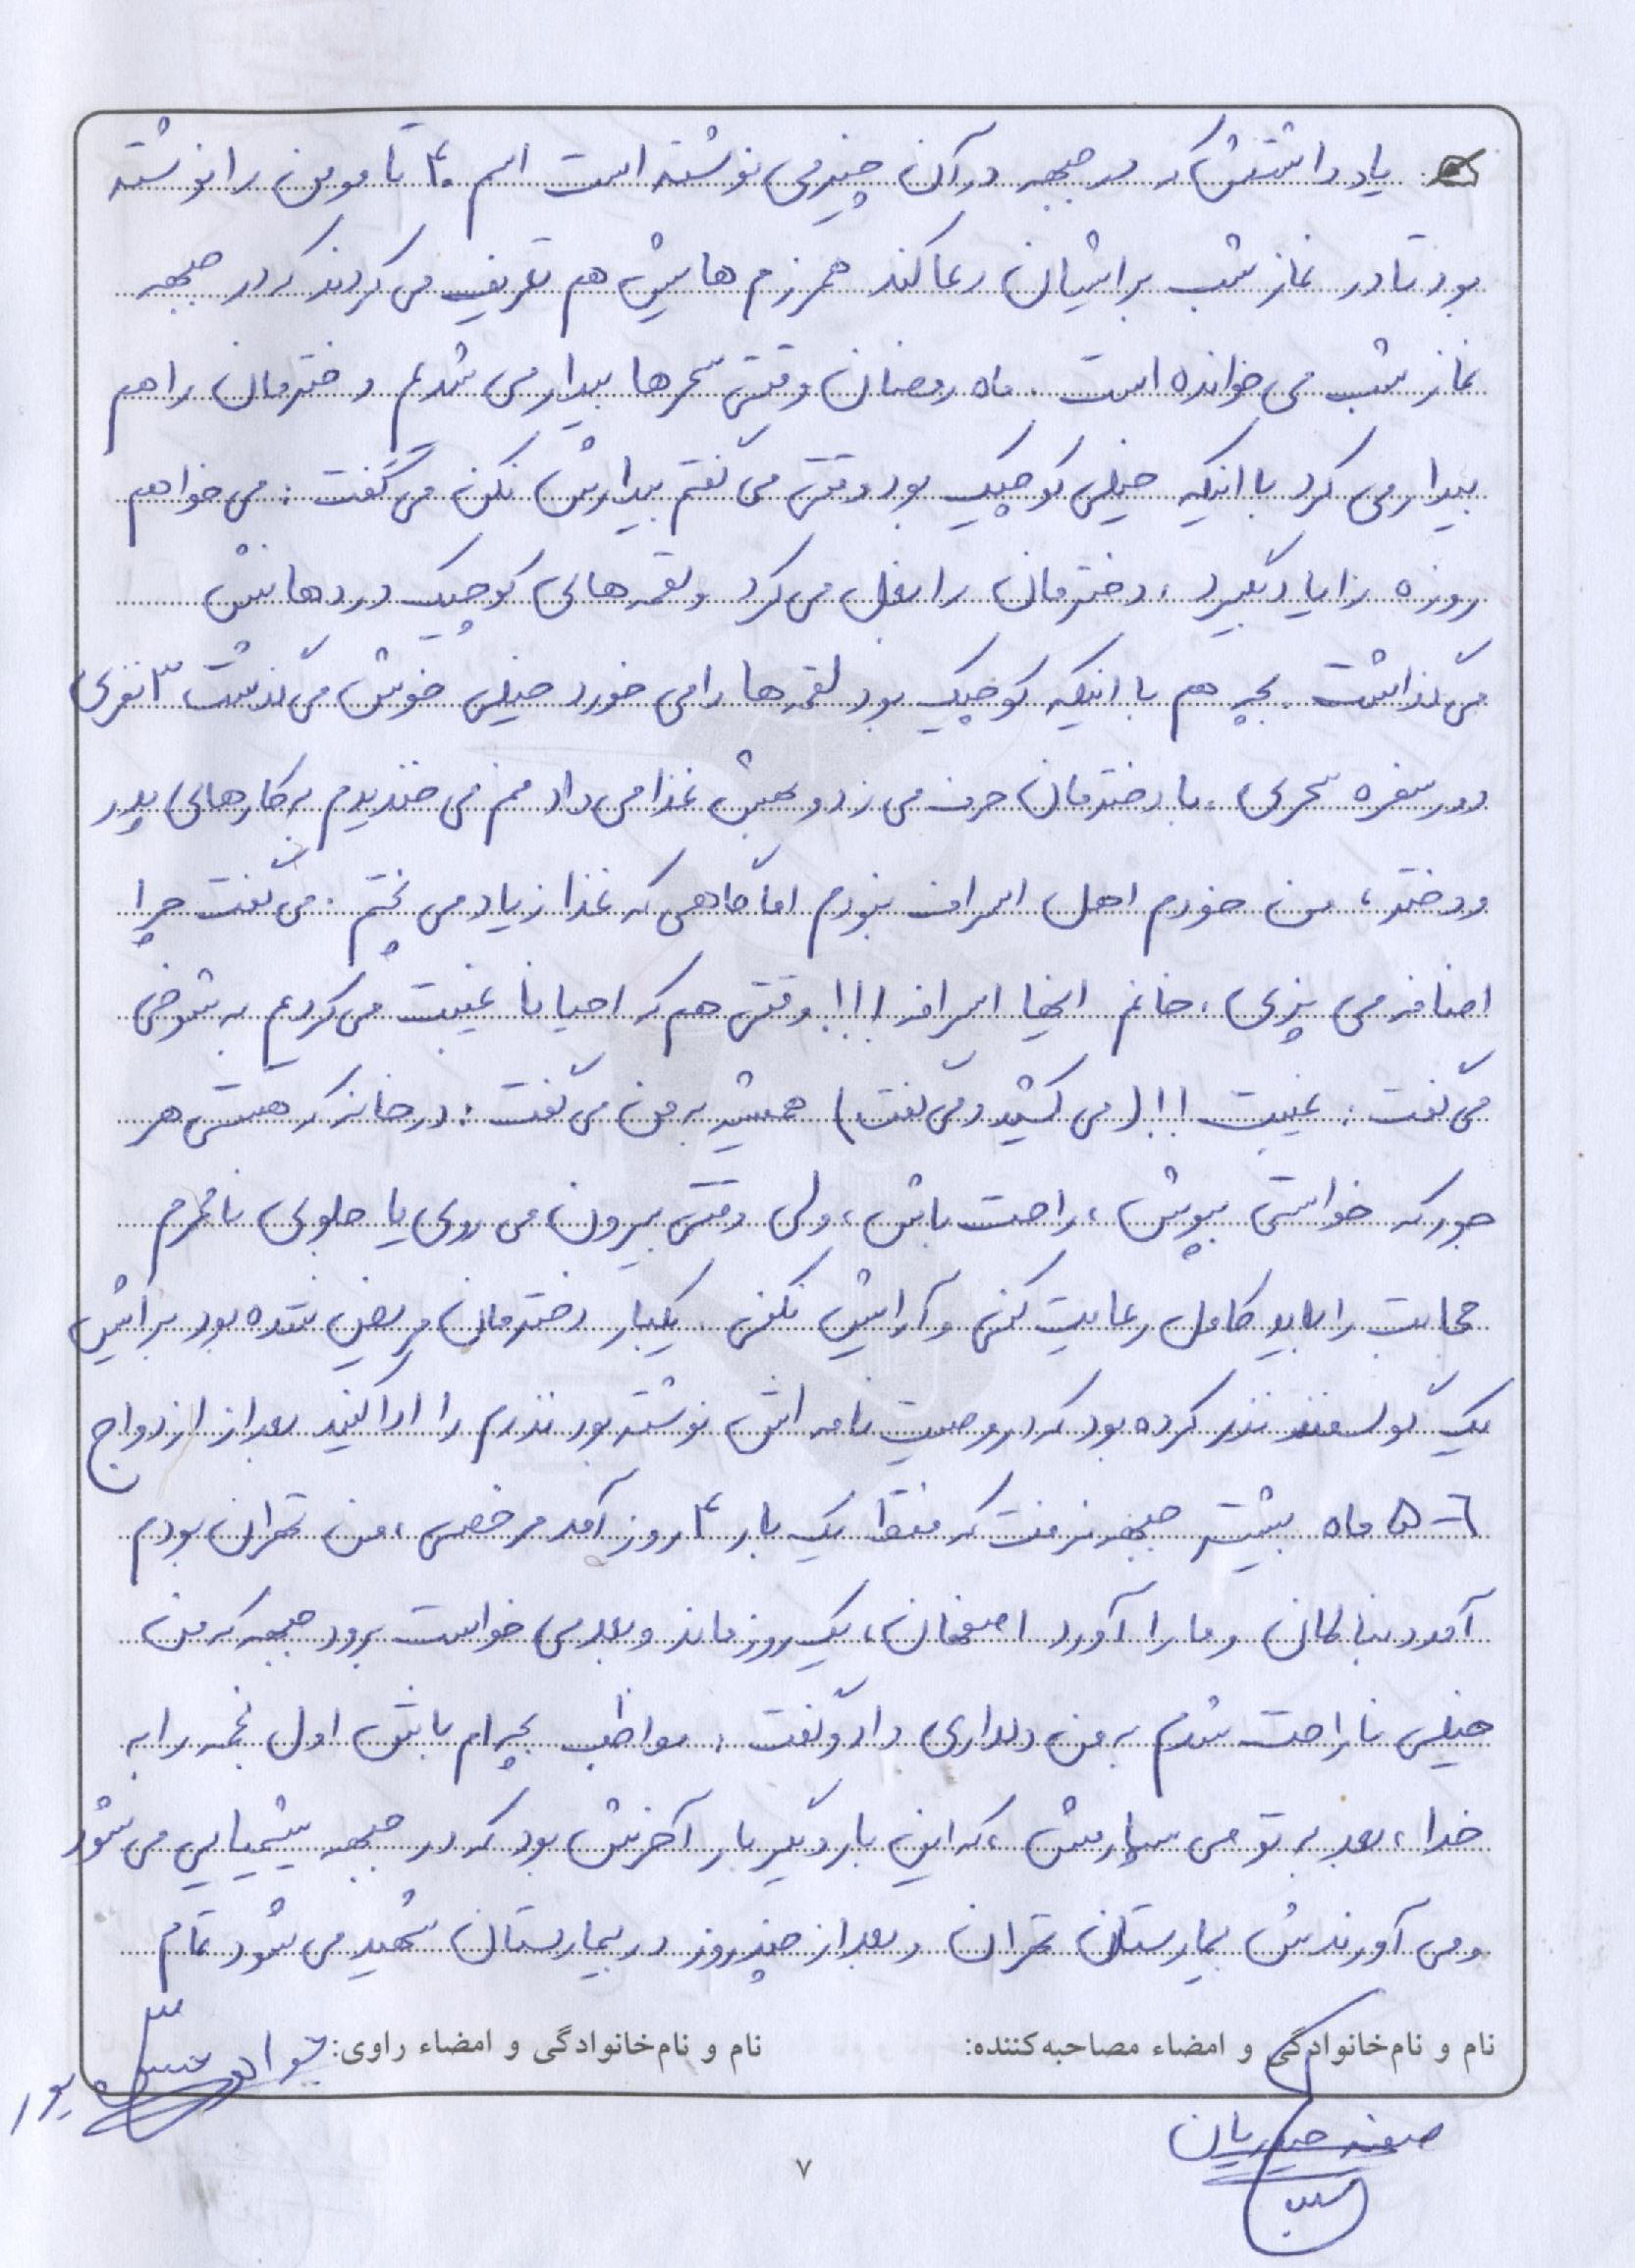 یادداشتش که در جبهه در آن چیز می نوشته است اسم ۴۰ تا مومن را نوشته
بود تا در نماز شب برایشان دعا کند همرزم هایش هم تعریف می کردند که در جبهه
نماز شب می خوانده است . ماه رمضان وقتی سحرها بیدار می شدیم دخترمان را هم
بیدار می کرد با اینکه خیلی کوچیک بود وقتی می گفتم بیدارش نکن می گفت : می خواهم
روزه را یاد بگیرد ، دخترمان را بغل می کرد و لقمه های کوچیک در دهانش
می گذاشت . بچه هم با اینکه کوچیک بود لقمه ها را می خورد خیلی خوش می گذشت ۳ نفری
دور سفره سحری . با دخترمان حرف می زد و بهش غذا می داد منم می خندیدم به کارهای پدر
و دختر ، من خودم اهل اسراف نبودم اما گاهی که غذا زیاد می پختم . می گفت چرا
اضافه می پزی ، خانم اینها اسرافه !!! وقتی هم که احیانا غیبت می کردیم به شوخی
می گفت : غیبت !!! (می کشید و می گفت) همیشه به من می گفت : در خانه که هستی هر
جور که خواستی بپوش ، راحت باش ، ولی وقتی بیرون می روی یا جلوی نامحرم
حجابت را باید کامل رعایت کنی و آرایش نکنی . یکبار دخترمان مریض شده بود برایش
یک گوسفند نذر کرده بود که در وصیت نامه اش نوشته بود نذرم را ادا کنید بعد از ازدواج
۵-۶ ماه بیشتر جبهه نرفت که فقط یک بار ۴ روز آمد مرخصی ، من تهران بودم
آمد دنبالمان و ما را آورد اصفهان ، یک روز ماند و بعد می خواست برود جبهه که من
خیلی ناراحت شدم به من دلداری داد و گفت : مواظب بچه ام باش اول نجمه را به
خدا ، بعد به تو می سپارمش ، که این بار دیگر بار آخرش بود که در جبهه شیمیایی می شود
و می آورندش بیمارستان تهران و بعد از چند روز در بیمارستان شهید می شود تمام
نام و نام‌خانوادگی و امضاء مصاحبه‌کننده:
نام و نام‌خانوادگی و امضاء راوی:
۷